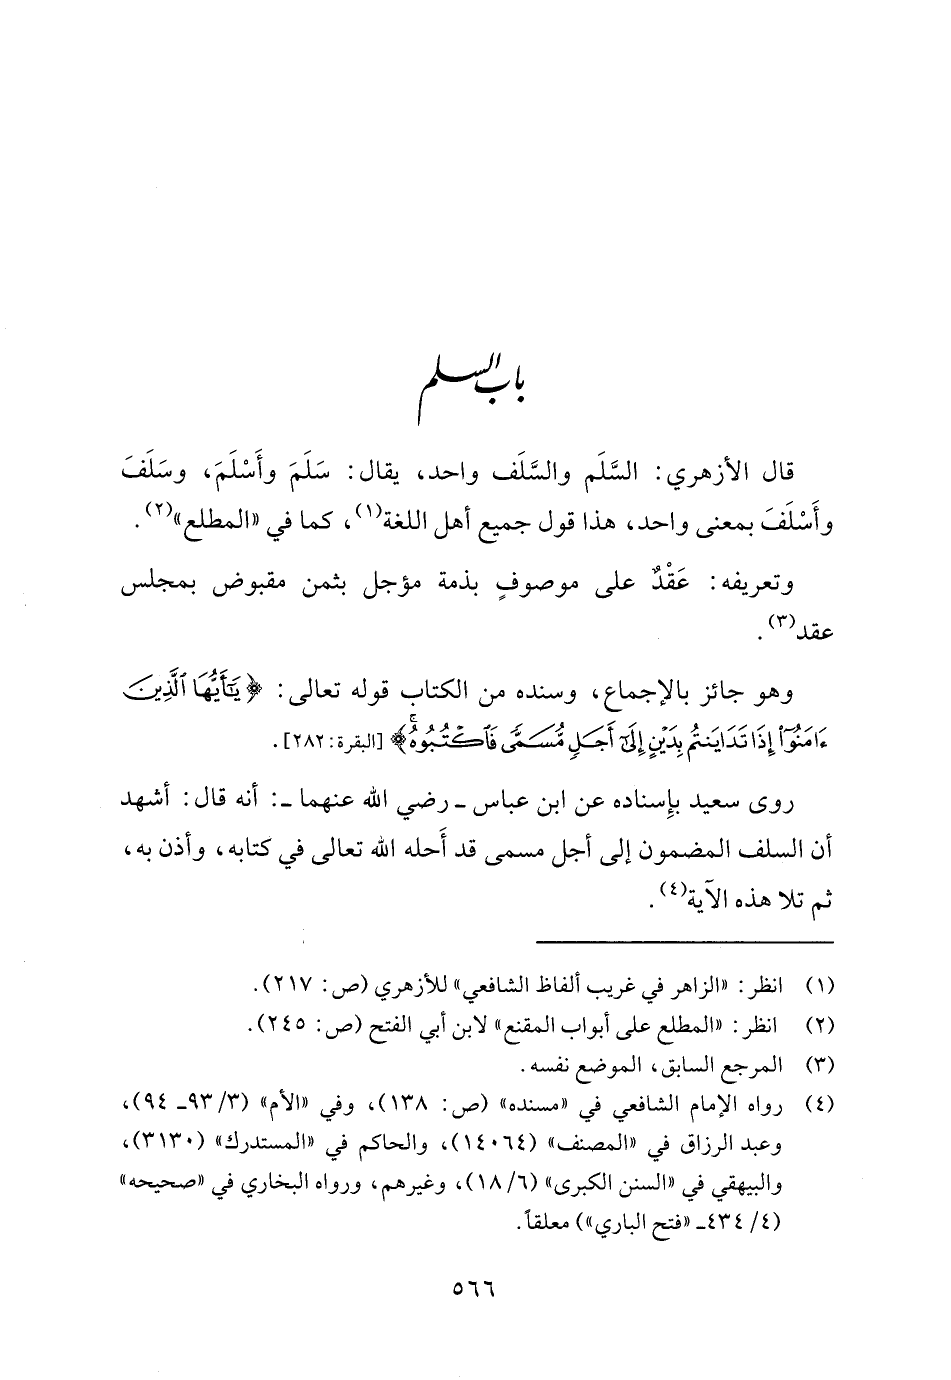 باب السلم
قال الأزهري: السَّلَم والسَّلَف واحد، يقال: سَلَمَ وأَسْلَمَ، وسَلَفَ
وأَسْلَفَ بمعنى واحد، هذا قول جميع أهل اللغة(١)، كما في «المطلع»(٢).
وتعريفه: عَقْدٌ على موصوفٍ بذمة مؤجل بثمن مقبوض بمجلس
عقد(٣).
وهو جائز بالإجماع، وسنده من الكتاب قوله تعالى: ﴿يَٰٓأَيُّهَا ٱلَّذِينَ
ءَامَنُوٓا۟ إِذَا تَدَايَنتُم بِدَيْنٍ إِلَىٰٓ أَجَلٍ مُّسَمًّى فَٱكْتُبُوهُ ۚ﴾ [البقرة: ٢٨٢].
روى سعيد بإِسناده عن ابن عباس ـ رضي الله عنهما ـ: أنه قال: أشهد
أن السلف المضمون إلى أجل مسمى قد أَحله الله تعالى في كتابه، وأذن به،
ثم تلا هذه الآية(٤).
(١) انظر: «الزاهر في غريب ألفاظ الشافعي» للأزهري (ص: ٢١٧).
(٢) انظر: «المطلع على أبواب المقنع» لابن أبي الفتح (ص: ٢٤٥).
(٣) المرجع السابق، الموضع نفسه.
(٤) رواه الإمام الشافعي في «مسنده» (ص: ١٣٨)، وفي «الأم» (٣/ ٩٣ـ ٩٤)،
وعبد الرزاق في «المصنف» (١٤٠٦٤)، والحاكم في «المستدرك» (٣١٣٠)،
والبيهقي في «السنن الكبرى» (٦/ ١٨)، وغيرهم، ورواه البخاري في «صحيحه»
(٤/ ٤٣٤ـ «فتح الباري») معلقاً.
٥٦٦